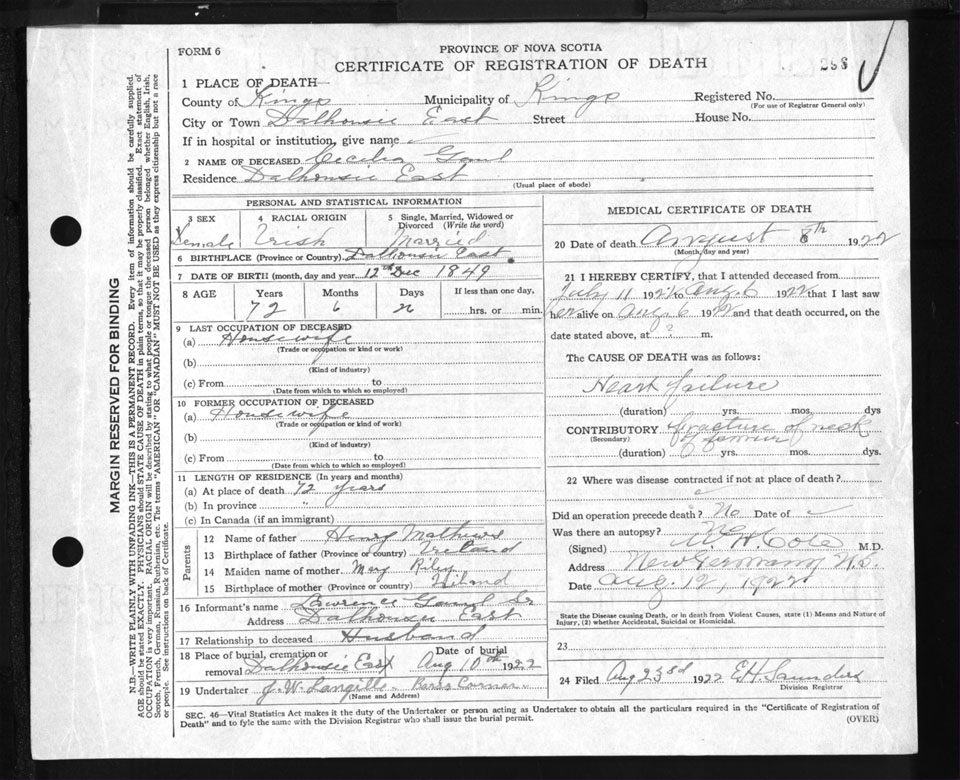 FORM 6
PROVINCE OF NOVA SCOTIA
CERTIFICATE OF REGISTRATION OF DEATH
298
MARGIN RESERVED FOR BINDING
N.B.—WRITE PLAINLY WITH UNFADING INK—THIS IS A PERMANENT RECORD. Every item of information should be carefully supplied.
AGE should be stated EXACTLY. PHYSICIANS should STATE CAUSE OF DEATH in plain terms, so that it may be properly classified. Exact statement of
OCCUPATION is very important. RACIAL ORIGIN will be described by stating to what people or tongue the deceased person belonged whether English, Irish,
Scotch, French, German, Russian, Ruthenian, etc. The terms "AMERICAN" OR "CANADIAN" MUST NOT BE USED as they express citizenship but not a race
or people. See instructions on back of Certificate.
1 PLACE OF DEATH—
County of Kings Municipality of Kings Registered No.
(For use of Registrar General only)
City or Town Dalhousie East Street House No.
If in hospital or institution, give name
2 NAME OF DECEASED Cecilia Gaul
Residence Dalhousie East
(Usual place of abode)
PERSONAL AND STATISTICAL INFORMATION
3 SEX 4 RACIAL ORIGIN 5 Single, Married, Widowed or
Divorced (Write the word)
Female Irish Married
6 BIRTHPLACE (Province or Country) Dalhousie East
7 DATE OF BIRTH (month, day and year) 12th Dec 1849
8 AGE Years Months Days If less than one day,
72 6 26 hrs. or min.
9 LAST OCCUPATION OF DECEASED
(a) Housewife
(Trade or occupation or kind or work)
(b)
(Kind of industry)
(c) From to
(Date from which to which so employed)
10 FORMER OCCUPATION OF DECEASED
(a) Housewife
(Trade or occupation or kind of work)
(b)
(Kind of industry)
(c) From to
(Date from which to which so employed)
11 LENGTH OF RESIDENCE (In years and months)
(a) At place of death 72 years
(b) In province "
(c) In Canada (if an immigrant)
Parents
12 Name of father Henry Mathews
13 Birthplace of father (Province or country) Ireland
14 Maiden name of mother Mary Riley
15 Birthplace of mother (Province or country)
16 Informant's name Lawrence Gaul Sr
Address Dalhousie East
17 Relationship to deceased Husband
18 Place of burial, cremation or removal Dalhousie East
Date of burial Aug 10th 1922
19 Undertaker J. W. Langille - Corner
(Name and Address)
MEDICAL CERTIFICATE OF DEATH
20 Date of death August 8th 1922
(Month, day and year)
21 I HEREBY CERTIFY, that I attended deceased from
July 11 1922 to Aug. 6 1922 that I last saw
her alive on Aug. 6 1922 and that death occurred, on the
date stated above, at ? m.
The CAUSE OF DEATH was as follows:
Heart failure
(duration) yrs. mos. dys
CONTRIBUTORY fracture of neck
(Secondary) of femur
(duration) yrs. mos. dys.
22 Where was disease contracted if not at place of death?
Did an operation precede death? No Date of
Was there an autopsy? No
(Signed) W H Cole M.D.
Address New Germany N.S.
Date Aug. 12, 1922
State the Disease causing Death, or in death from Violent Causes, state (1) Means and Nature of
Injury, (2) whether Accidental, Suicidal or Homicidal.
23
24 Filed Aug 23rd 1922 E H. Saunders
Division Registrar
SEC. 46—Vital Statistics Act makes it the duty of the Undertaker or person acting as Undertaker to obtain all the particulars required in the "Certificate of Registration of
Death" and to fyle the same with the Division Registrar who shall issue the burial permit.
(OVER)